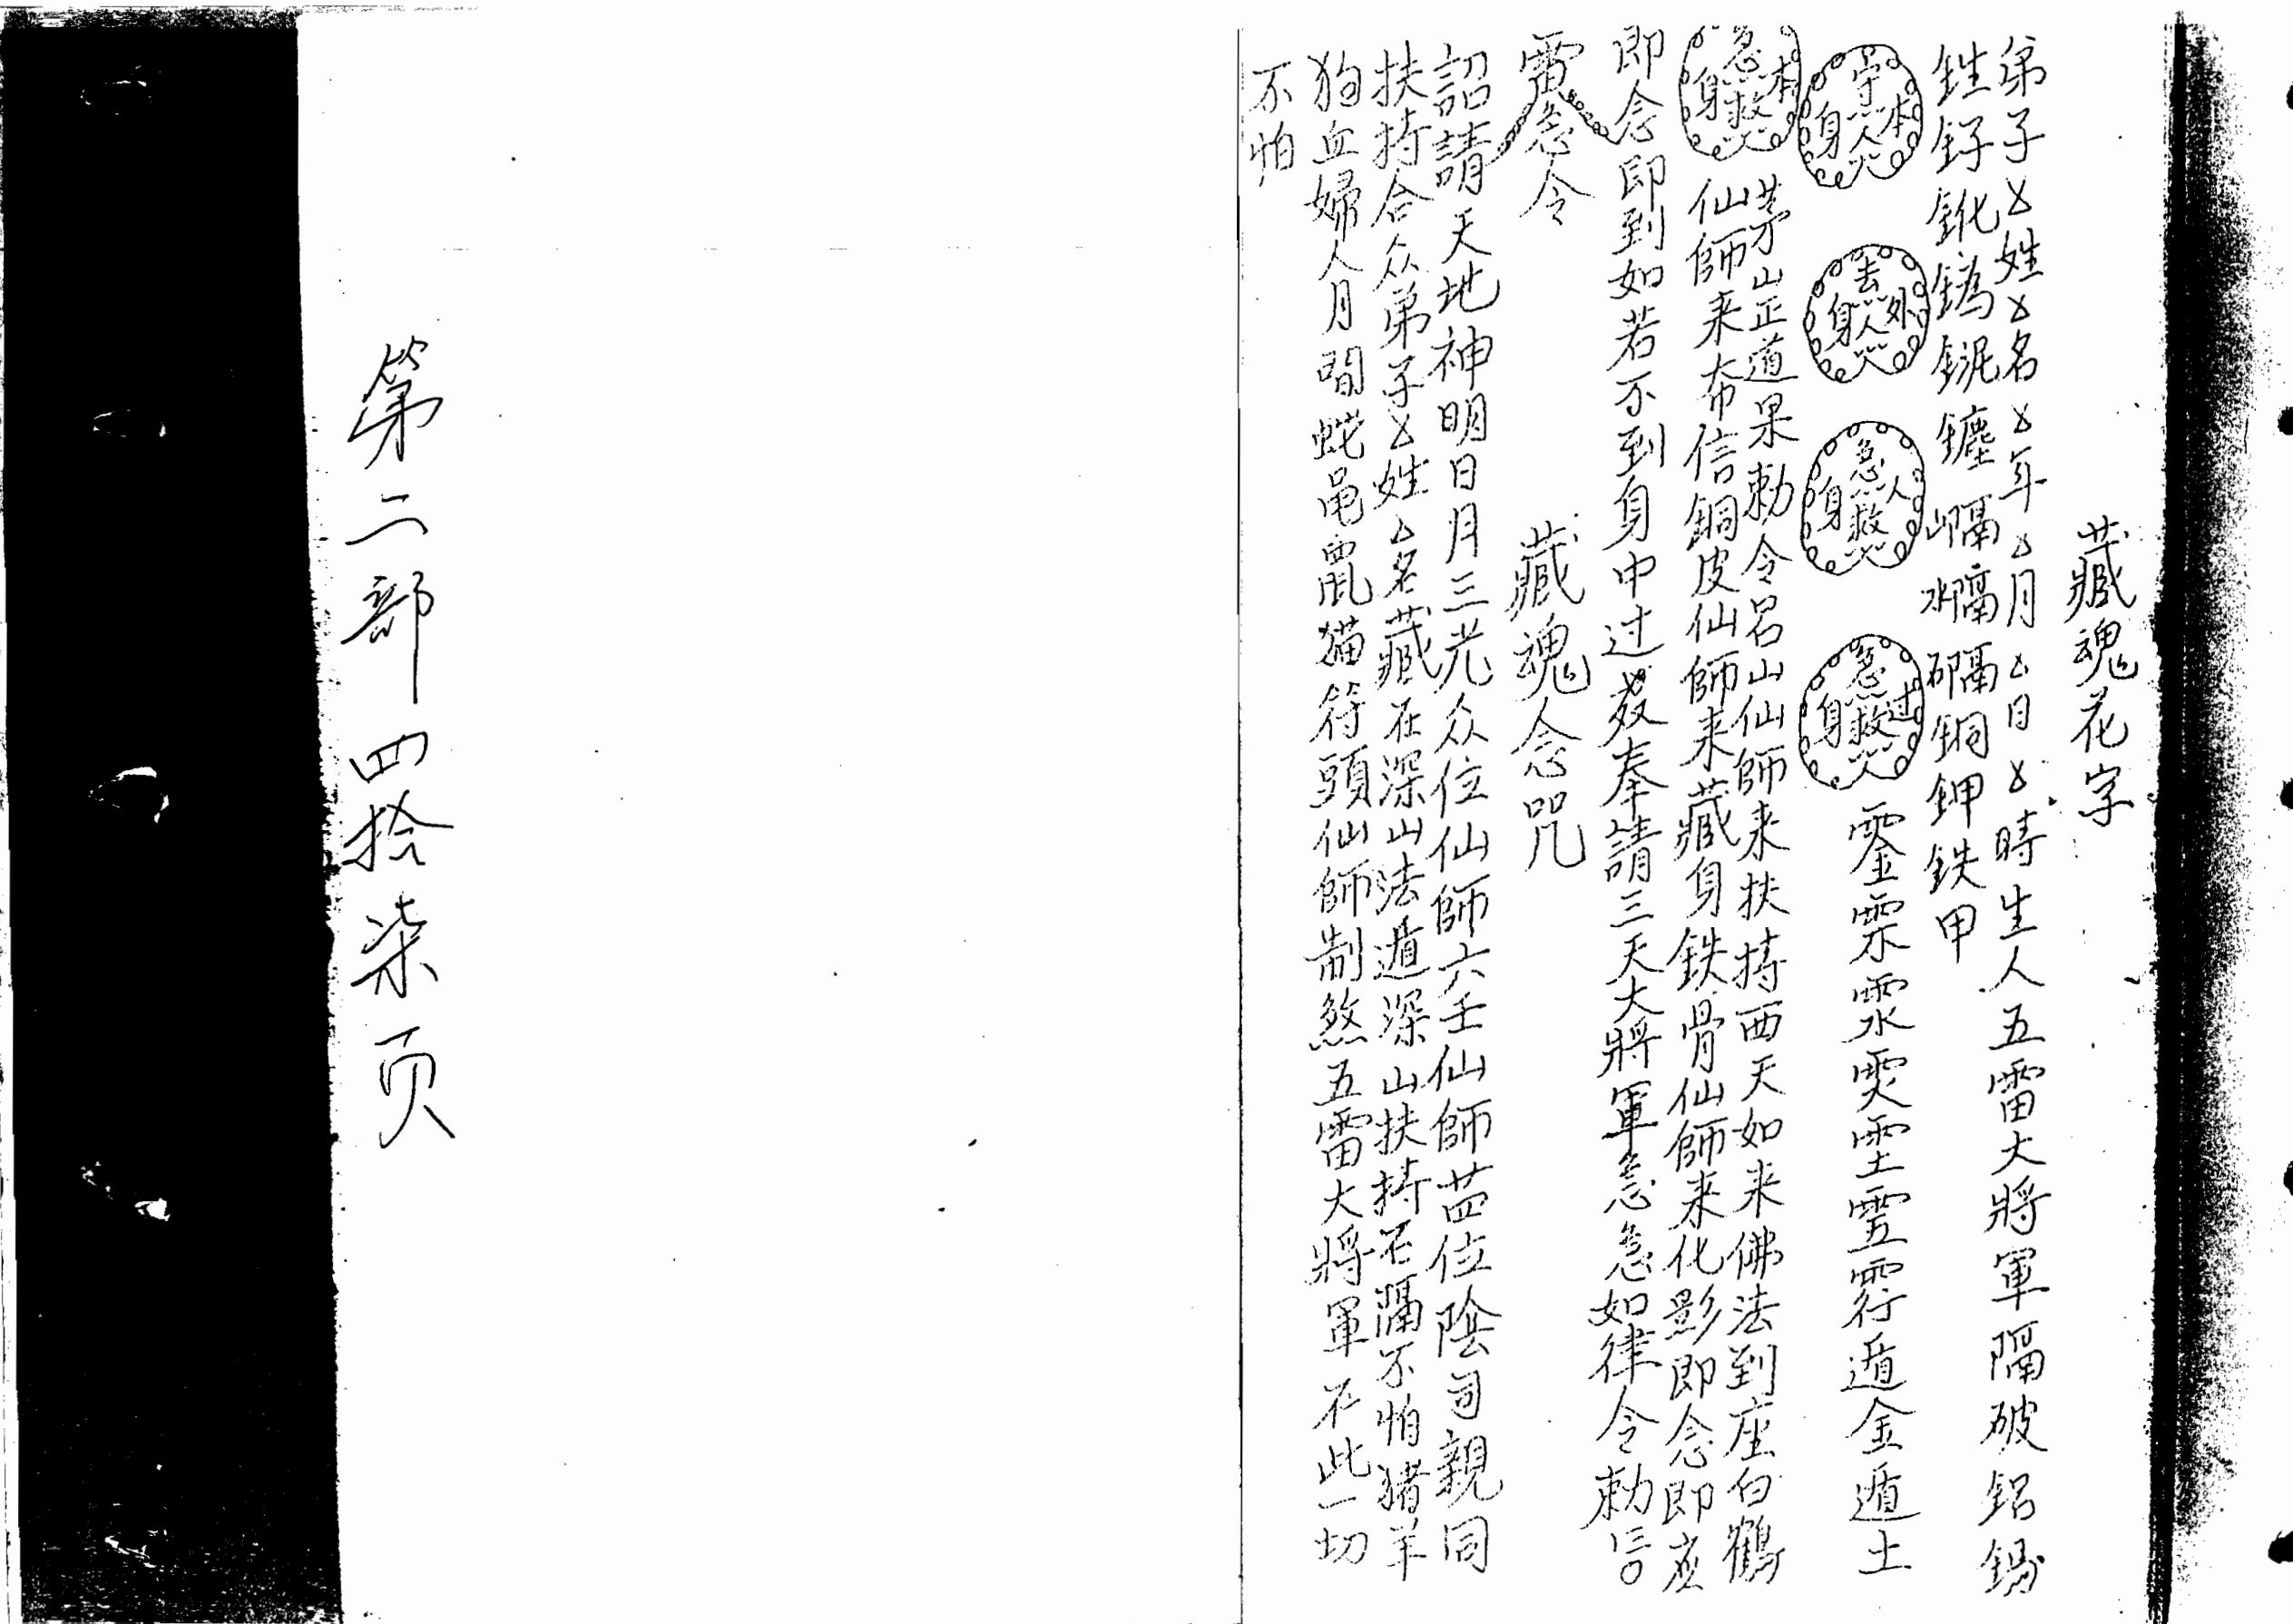 藏魂花字
弟子厶姓厶名厶年厶月厶日厶時生人五雷大將軍隔破鋁錫
銅鉀鉄甲
守本身人
去外身人
急救人身
急救过身人
遁金遁土
急救本身
茅山正道果勅令呂山仙師来扶持西天如来佛法到座白鶴
仙師来布信銅皮仙師来藏身鉄骨仙師来化影即念即应
即念即到如若不到身中过奉請三天大將軍急急如律令勅
急令
藏魂念咒
詔請天地神明日月三光众位仙師六壬仙師位陰司親同
扶持合众弟子厶姓厶名藏在深山法遁深山扶持石隔不怕猪羊
狗血婦人月間蛇黾鼠猫符頭仙師制煞五雷大將軍不此一切
不怕
第二部四拾柒页